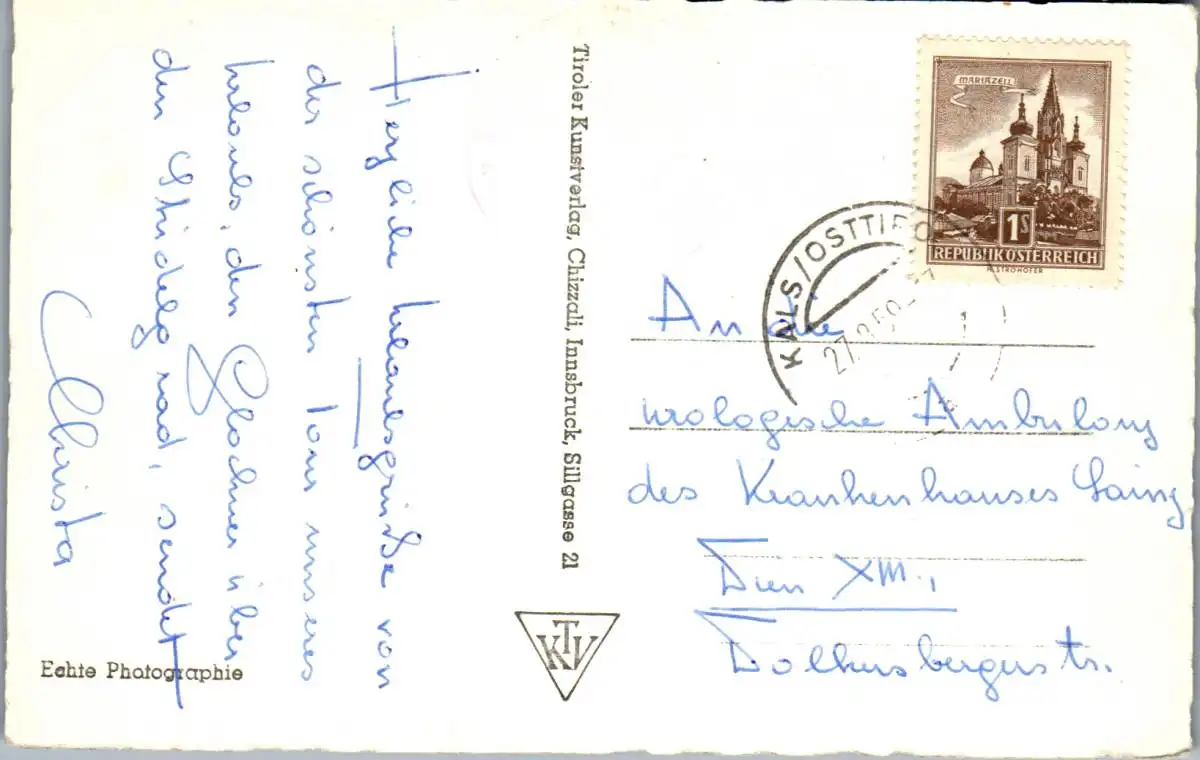 Herzliche Urlaubsgrüße von
der schönsten Tour unseres
Urlaubs, den Glockner über
den Stüdelgrad, sendet
Christa
Echte Photographie
Tiroler Kunstverlag, Chizzali, Innsbruck, Sillgasse 21
KTV
MARIAZELL
1S
REPUBLIK ÖSTERREICH
H. STROHOFER
KALS/OSTTIROL
An die
urologische Ambulanz
des Krankenhauses Lainz
Wien XIII.,
Wolkersbergerstr.